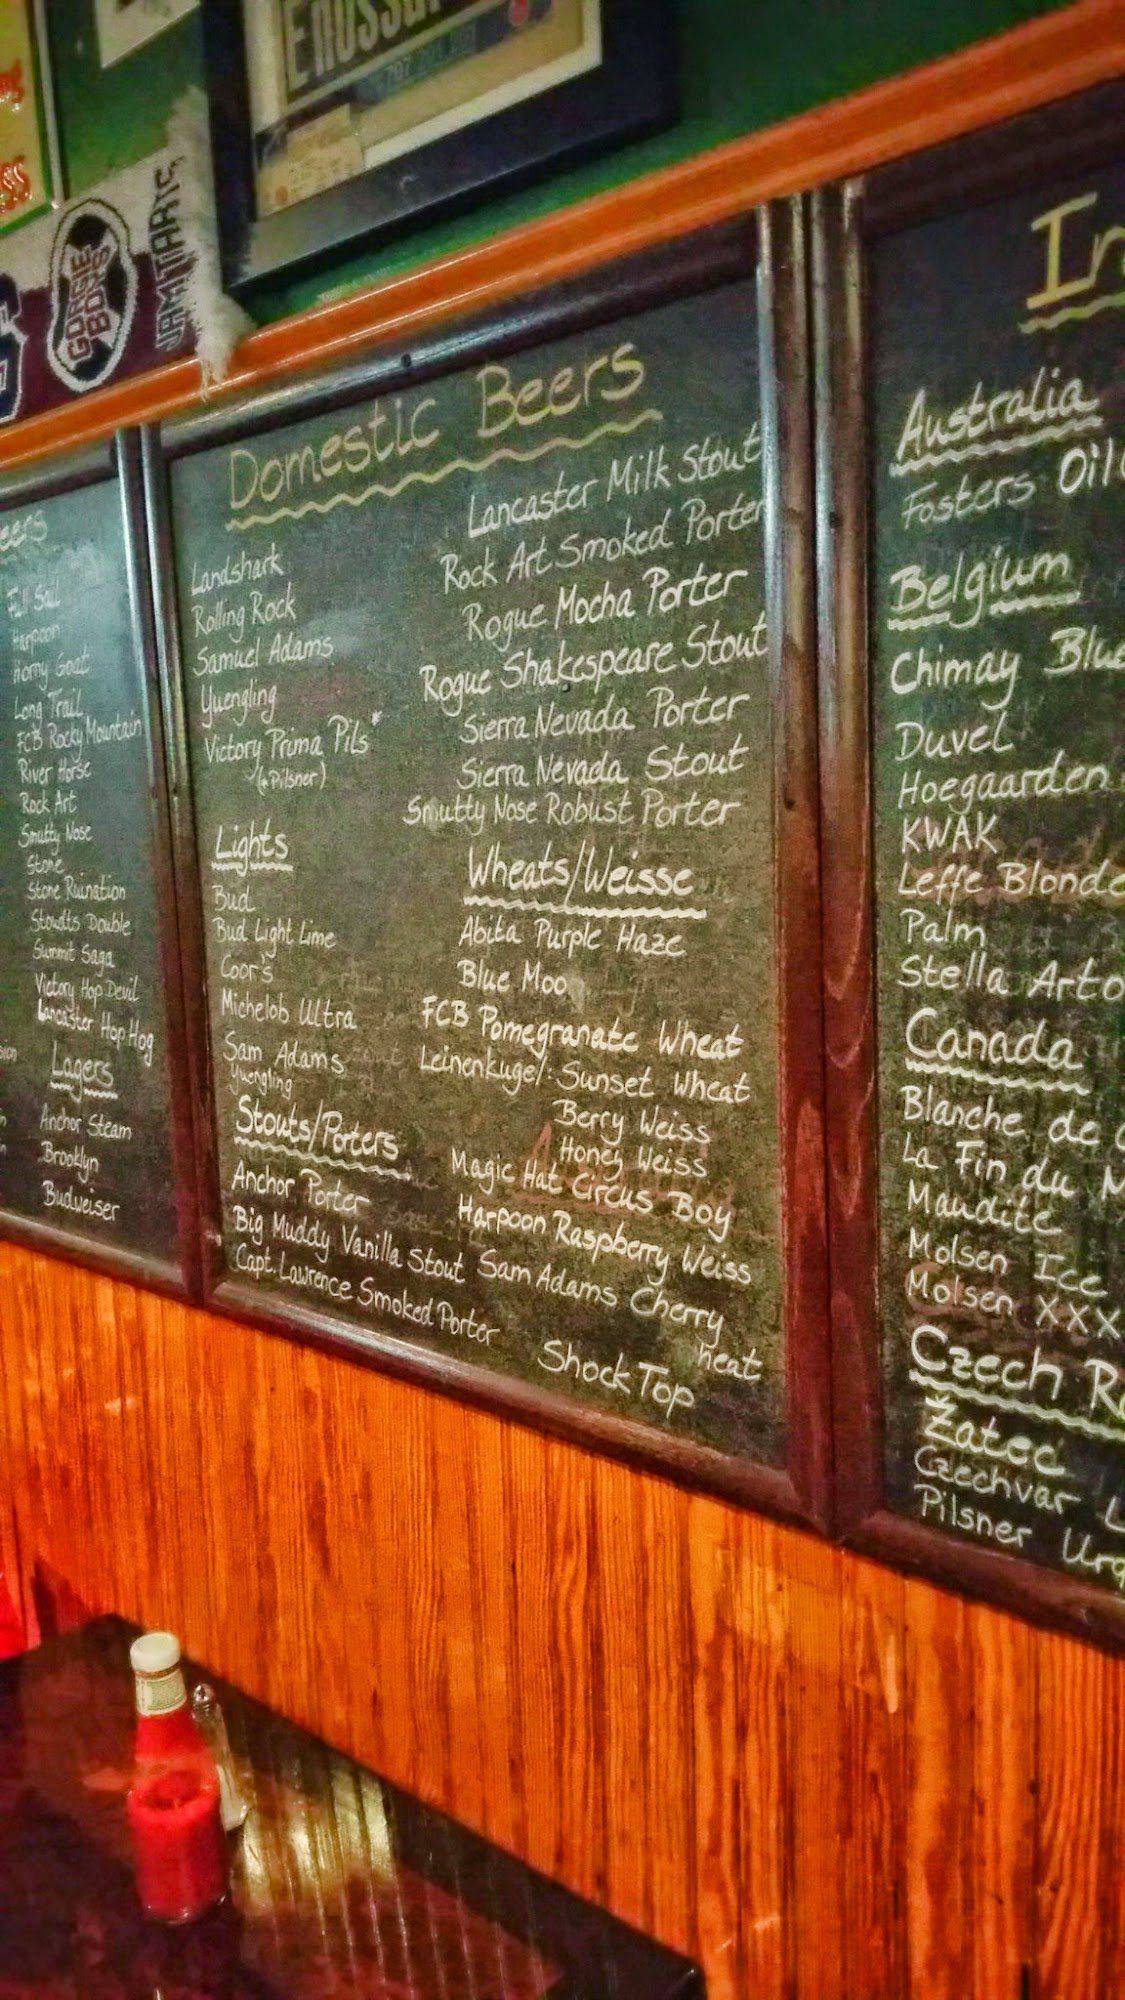 GORGIE
BOYS
JAMTARTS
Beers
Full Sail
Harpoon
Horny Goat
Long Trail
FCB Rocky Mountain
River Horse
Rock Art
Smutty Nose
Stone
Stone Ruination
Stoudts Double
Summit Saga
Victory Hop Devil
Lancaster Hop Hog
Lagers
Anchor Steam
Brooklyn
Budweiser
Domestic Beers
Landshark
Rolling Rock
Samuel Adams
Yuengling
Victory Prima Pils*
(*Pilsner)
Lights
Bud
Bud Light Lime
Coor's
Michelob Ultra
Sam Adams
Yuengling
Stouts/Porters
Anchor Porter
Big Muddy Vanilla Stout
Capt. Lawrence Smoked Porter
Lancaster Milk Stout
Rock Art Smoked Porter
Rogue Mocha Porter
Rogue Shakespeare Stout
Sierra Nevada Porter
Sierra Nevada Stout
Smutty Nose Robust Porter
Wheats/Weisse
Abita Purple Haze
Blue Moo
FCB Pomegranate Wheat
Leinenkugel: Sunset Wheat
Berry Weiss
Honey Weiss
Magic Hat Circus Boy
Harpoon Raspberry Weiss
Sam Adams Cherry
heat
Shock Top
Australia
Fosters Oil
Belgium
Chimay Blue
Duvel
Hoegaarden
KWAK
Leffe Blonde
Palm
Stella Arto
Canada
Blanche de
La Fin du M
Maudite
Molsen Ice
Molsen XXX
Czech Re
Žatec
Czechvar L
Pilsner Urq